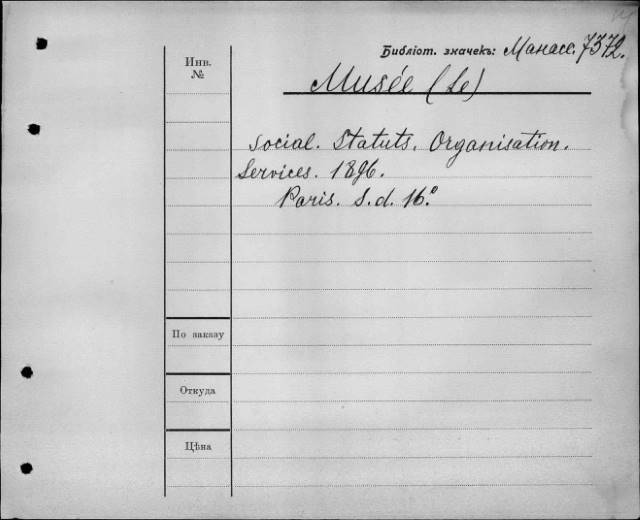 Библіот. значекъ: Манасс. 7372.
Инв. №
Musée (Le)
social. Statuts. Organisation.
Services. 1896.
Paris. S.d. 16.º
По заказу
Откуда
Цѣна